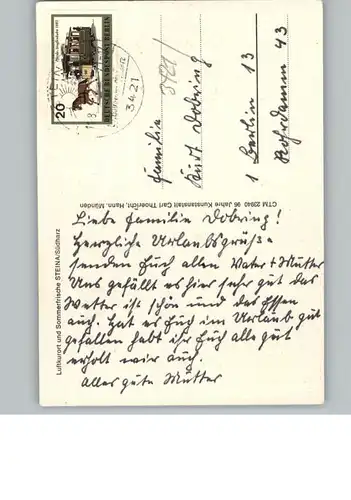 20
DEUTSCHE BUNDESPOST BERLIN
STEINA
3421
3421
Familie
Kurt Dobring
1 Berlin 13
Rohrdamm 43
CTM 22940 96 Jahre Kunstanstalt Carl Thoericht, Hann. Münden
Luftkurort und Sommerfrische STEINA/Südharz
Liebe Familie Dobring!
Herzliche Urlaubsgrüße
senden Euch allen Vater + Mutter
Uns gefällt es hier sehr gut das
Wetter ist schön und das Essen
auch. Hat es Euch im Urlaub gut
gefallen habt ihr Euch alle gut
erholt wir auch.
Alles gute Mutter